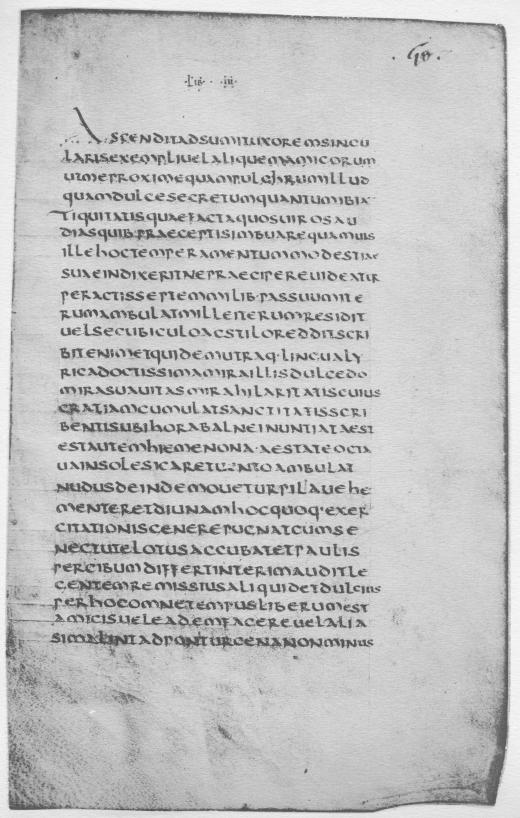 ·LIB· ·III·
ASCENDITADSUMITUXOREMSINGU
LARISEXEMPLIUELALIQUEMAMICORUM
UTMEPROXIMEQUAMPULCHRUMILLUD
QUAMDULCESECRETUMQUANTUMIBIAN
TIQUITATISQUAEFACTAQUOSUIROSAU
DIASQUIB·PRAECEPTISIMBUAREQUAMUIS
ILLEHOCTEMPERAMENTUMMODESTIAE
SUAEINDIXERITNEPRAECIPEREUIDEATUR
PERACTISSEPTEMMILIB·PASSUUMITE
RUMAMBULATMILLEITERUMRESIDIT
UELSECUBICULOACSTILOREDDITSCRI
BITENIMETQUIDEMUTRAQ·LINGUALY
RICADOCTISSIMAMIRAILLISDULCEDO
MIRASUAUITASMIRAHILARITATISCUIUS
GRATIAMCUMULATSANCTITATISSCRI
BENTISUBIHORABALNEINUNTIATAEST
ESTAUTEMHIEMENONA·AESTATEOCTA
UAINSOLESICARETUENTOAMBULAT
NUDUSDEINDEMOUETURPILAUEHE
MENTERETDIUNAMHOCQUOQ·EXER
CITATIONISGENEREPUGNATCUMSE
NECTUTELOTUSACCUBATETPAULIS
PERCIBUMDIFFERTINTERIMAUDITLE
GENTEMREMISSIUSALIQUIDETDULCIUS
PERHOCOMNETEMPUSLIBERUMEST
AMICISUELEADEMFACEREUELALIA
SIMALINTADPONITURCENANONMINUS